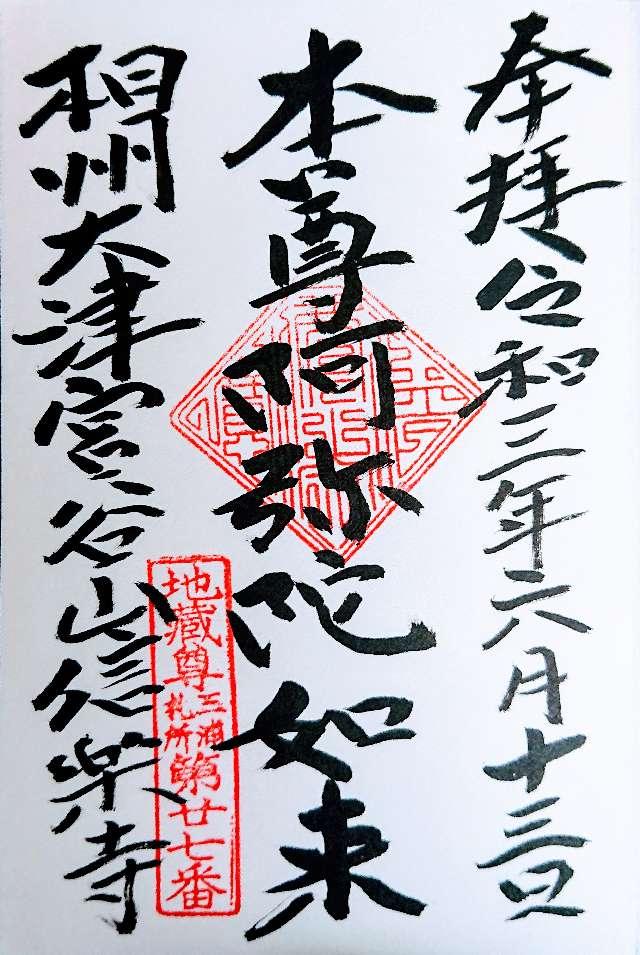 奉拝令和三年六月十三日
本尊阿弥陀如来
相州大津宮谷山信楽寺
地蔵尊三浦札所第廿七番